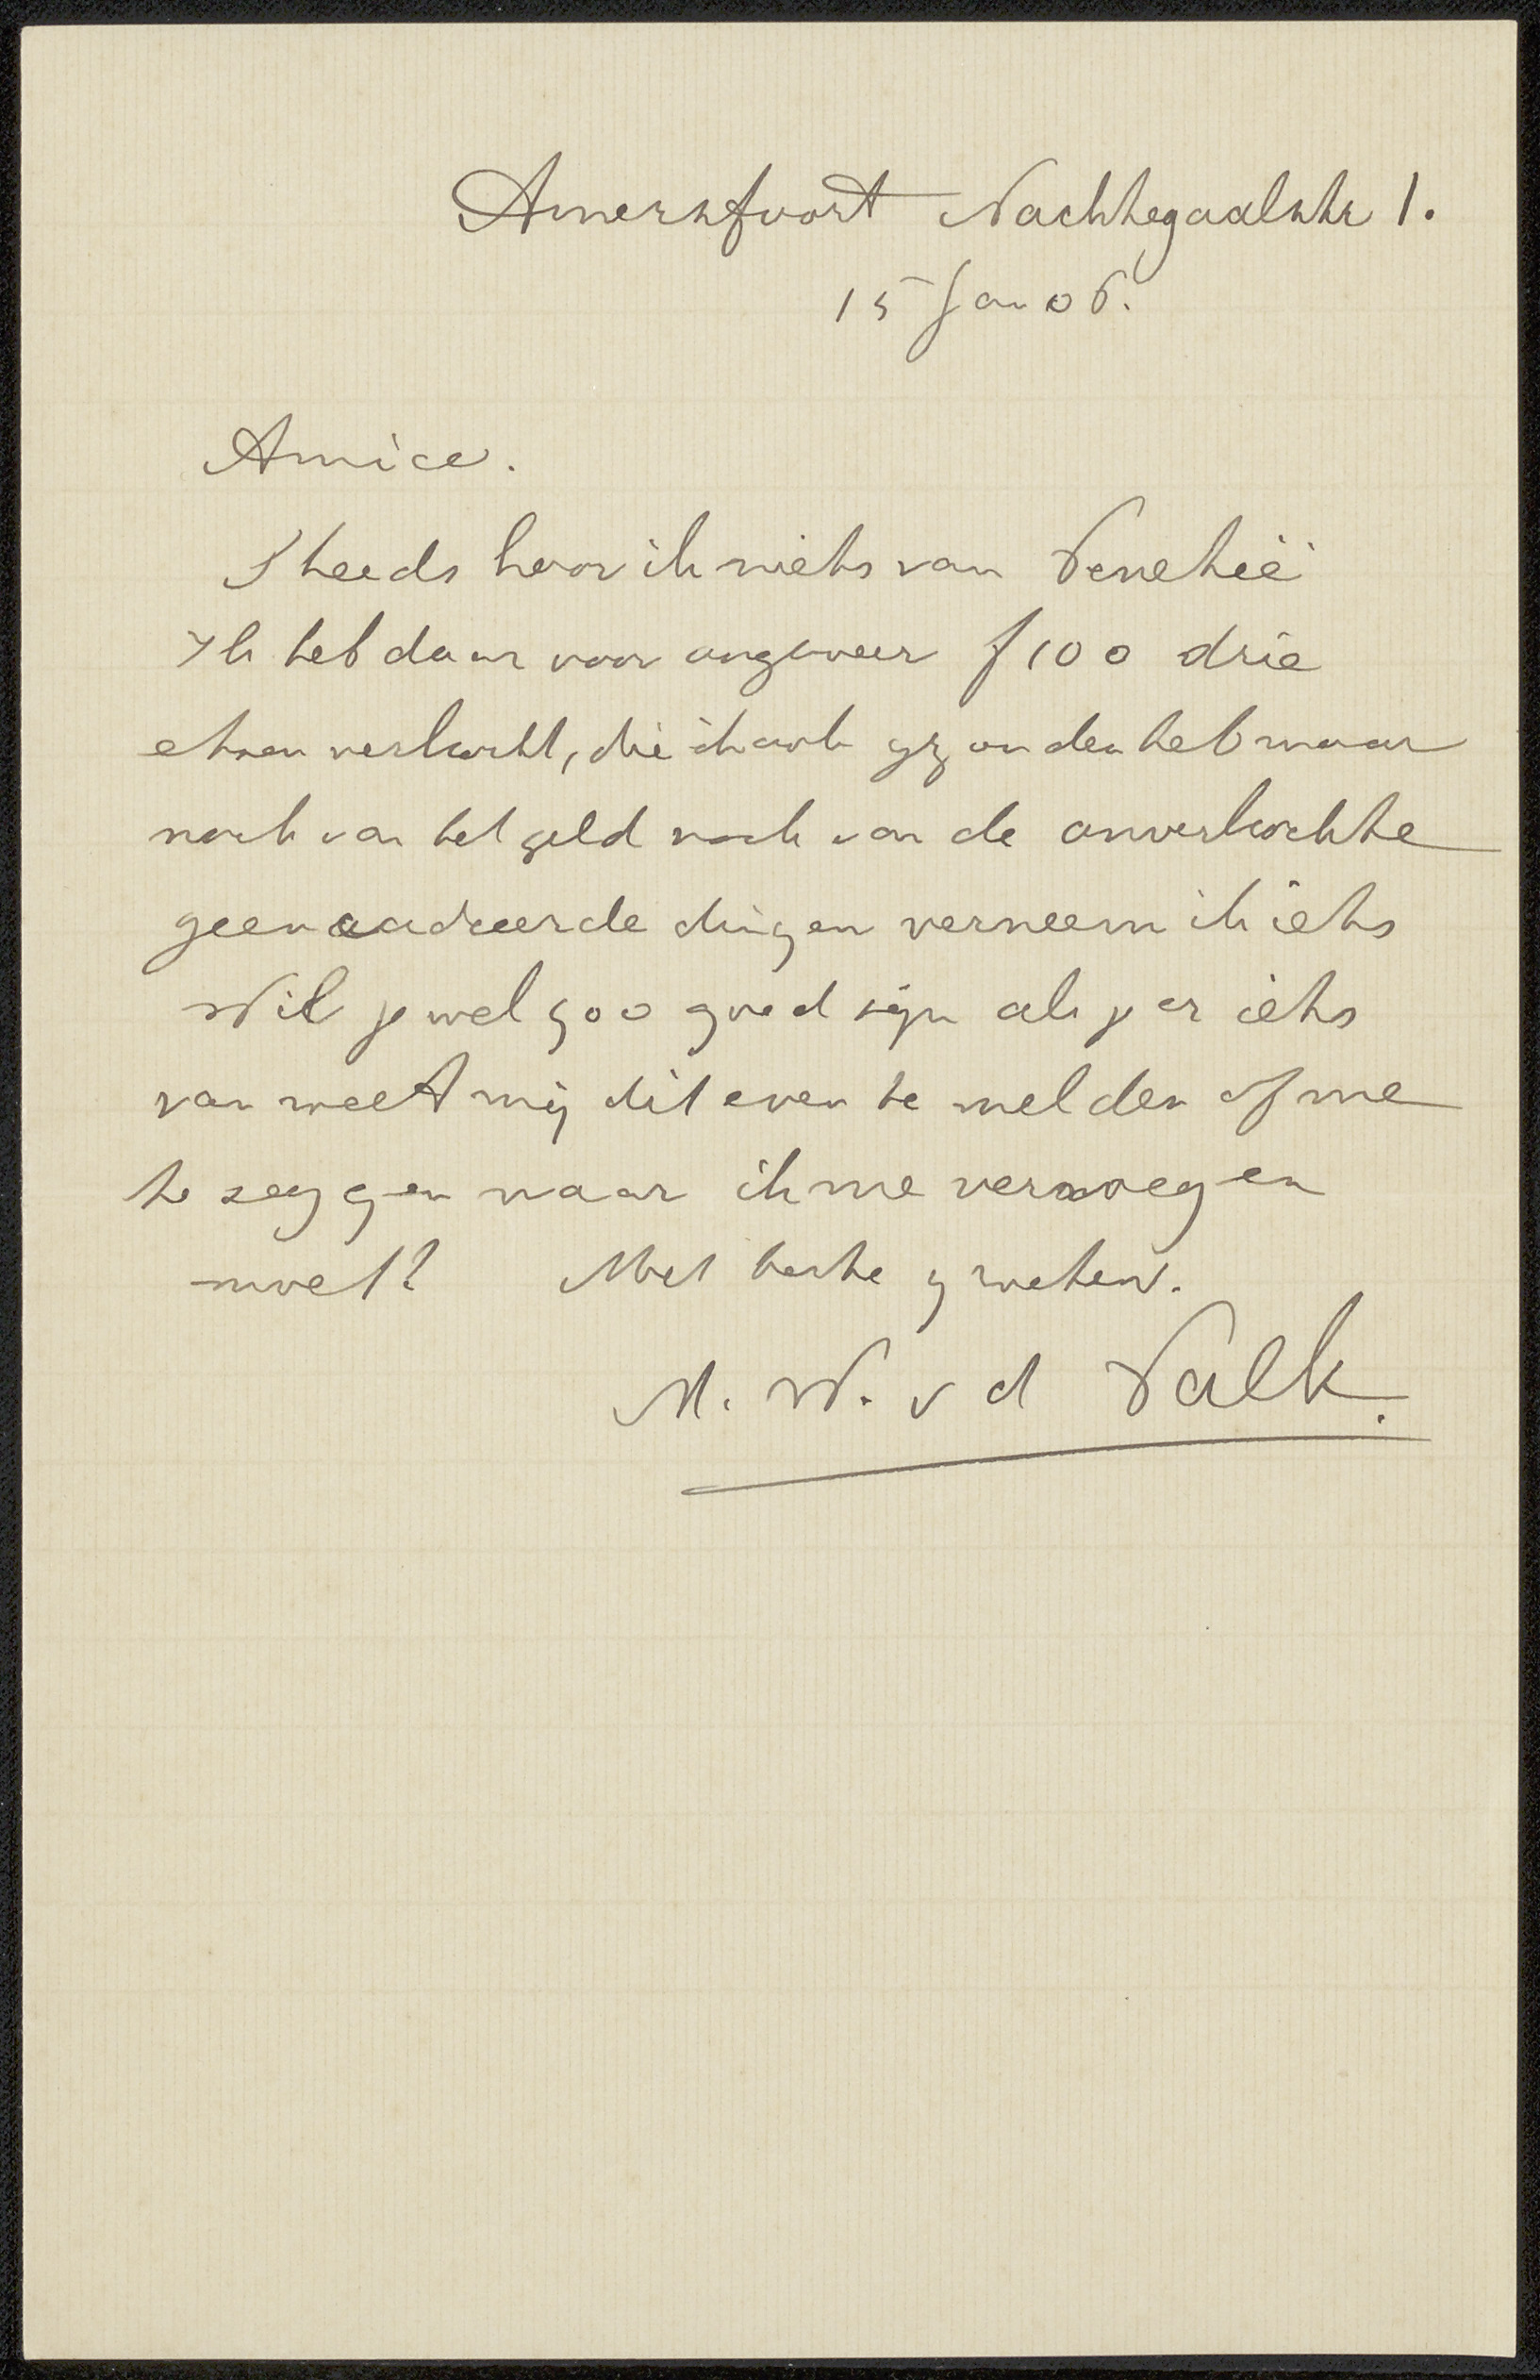 Amersfoort Nachtegaalstr 1.
15 Jan 06.
Amice.
Steeds hoor ik niets van Venetië
Ik heb daar voor ongeveer f 100 drie
etsen verkocht, die ik ook gezonden heb maar
noch van het geld noch van de onverkochte
geencadreerde dingen verneem ik iets
Wil je wel zoo goed zijn als je er iets
van weet mij dit even te melden of me
te zeggen waar ik me vervoegen
moet? Met beste groeten.
M. W. v d Valk.